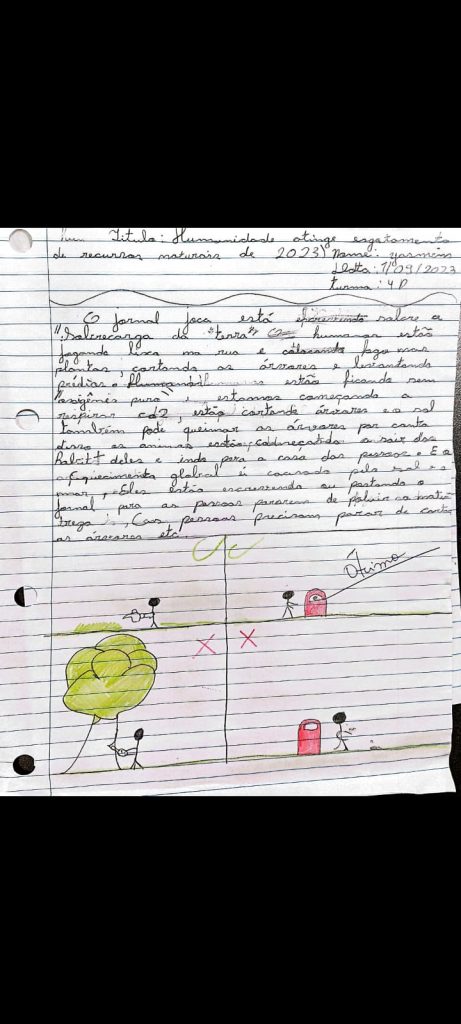 Titulo: Humunidade atinge esgotamento
de recursos naturais de 2023 Name: yasmim
Data: 1/09/2023
turma: 4º D
O Jornal joca está sobre a
"Sobrecarga da "terra" humanos estão
jogando lixo na rua e fogo nas
plantas, cortando as árvores e levantando
prédios o humanos estão ficando sem
oxigênis puro", estamos começando a
respirar co2, estão cortando árvores e o sol
também pode queimar as árvores por conta
disso os animas estão a sair dos
deles e indo para a casa das pessoas. E o
aquecimento global é causado pelo sol e o
mar, Eles estão escrevendo ou postando o
jornal para as pessoas pararem de Poluir a
as pessoas precisam parar de cortar
as árvores etc.
Ótimo